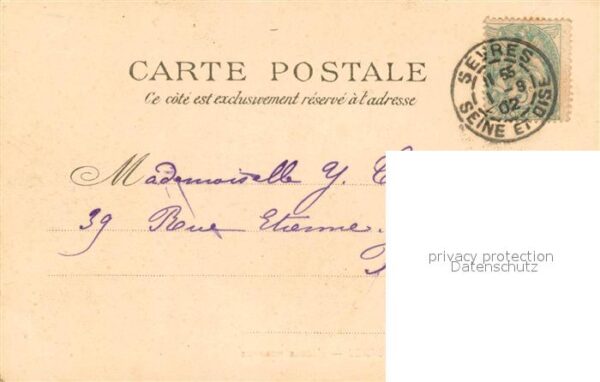 CARTE POSTALE
Ce côté est exclusivement réservé à l'adresse
SÈVRES
9
02
SEINE ET OISE
Mademoiselle Y.
39 Rue Etienne
privacy protection
Datenschutz